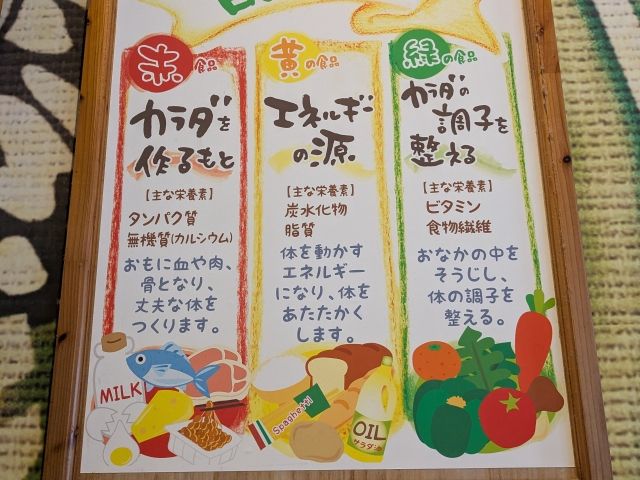 赤の食品
カラダを
作るもと
【主な栄養素】
タンパク質
無機質(カルシウム)
おもに血や肉、
骨となり、
丈夫な体を
つくります。
MILK
黄の食品
エネルギー
の源
【主な栄養素】
炭水化物
脂質
体を動かす
エネルギー
になり、体を
あたたかく
します。
Spaghetti
OIL
サラダ油
緑の食品
カラダの
調子を
整える
【主な栄養素】
ビタミン
食物繊維
おなかの中を
そうじし、
体の調子を
整える。